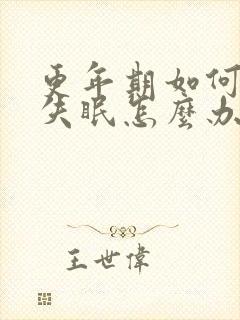 更年期如何
失眠怎麼办
王世偉